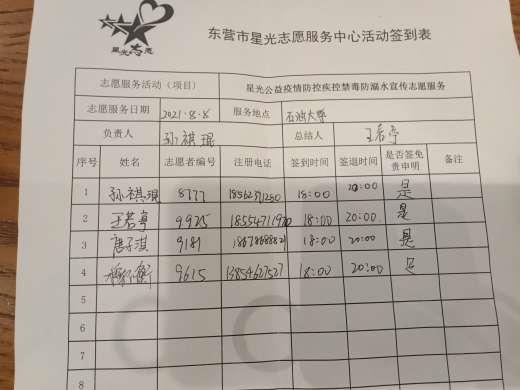 星光志愿
东营市星光志愿服务中心活动签到表
志愿服务活动（项目） 星光公益疫情防控疾控禁毒防溺水宣传志愿服务
志愿服务日期 2021.8.8 服务地点 石油大学
负责人 孙祺琨 总结人 王若亭
序号 姓名 志愿者编号 注册电话 签到时间 签退时间 是否签免责申明 备注
1 孙祺琨 8777 18:00 20:00 是
2 王若亭 9925 18:00 20:00 是
3 唐子淇 9181 18:00 20:00 是
4 9615 18:00 20:00 是
5
6
7
8